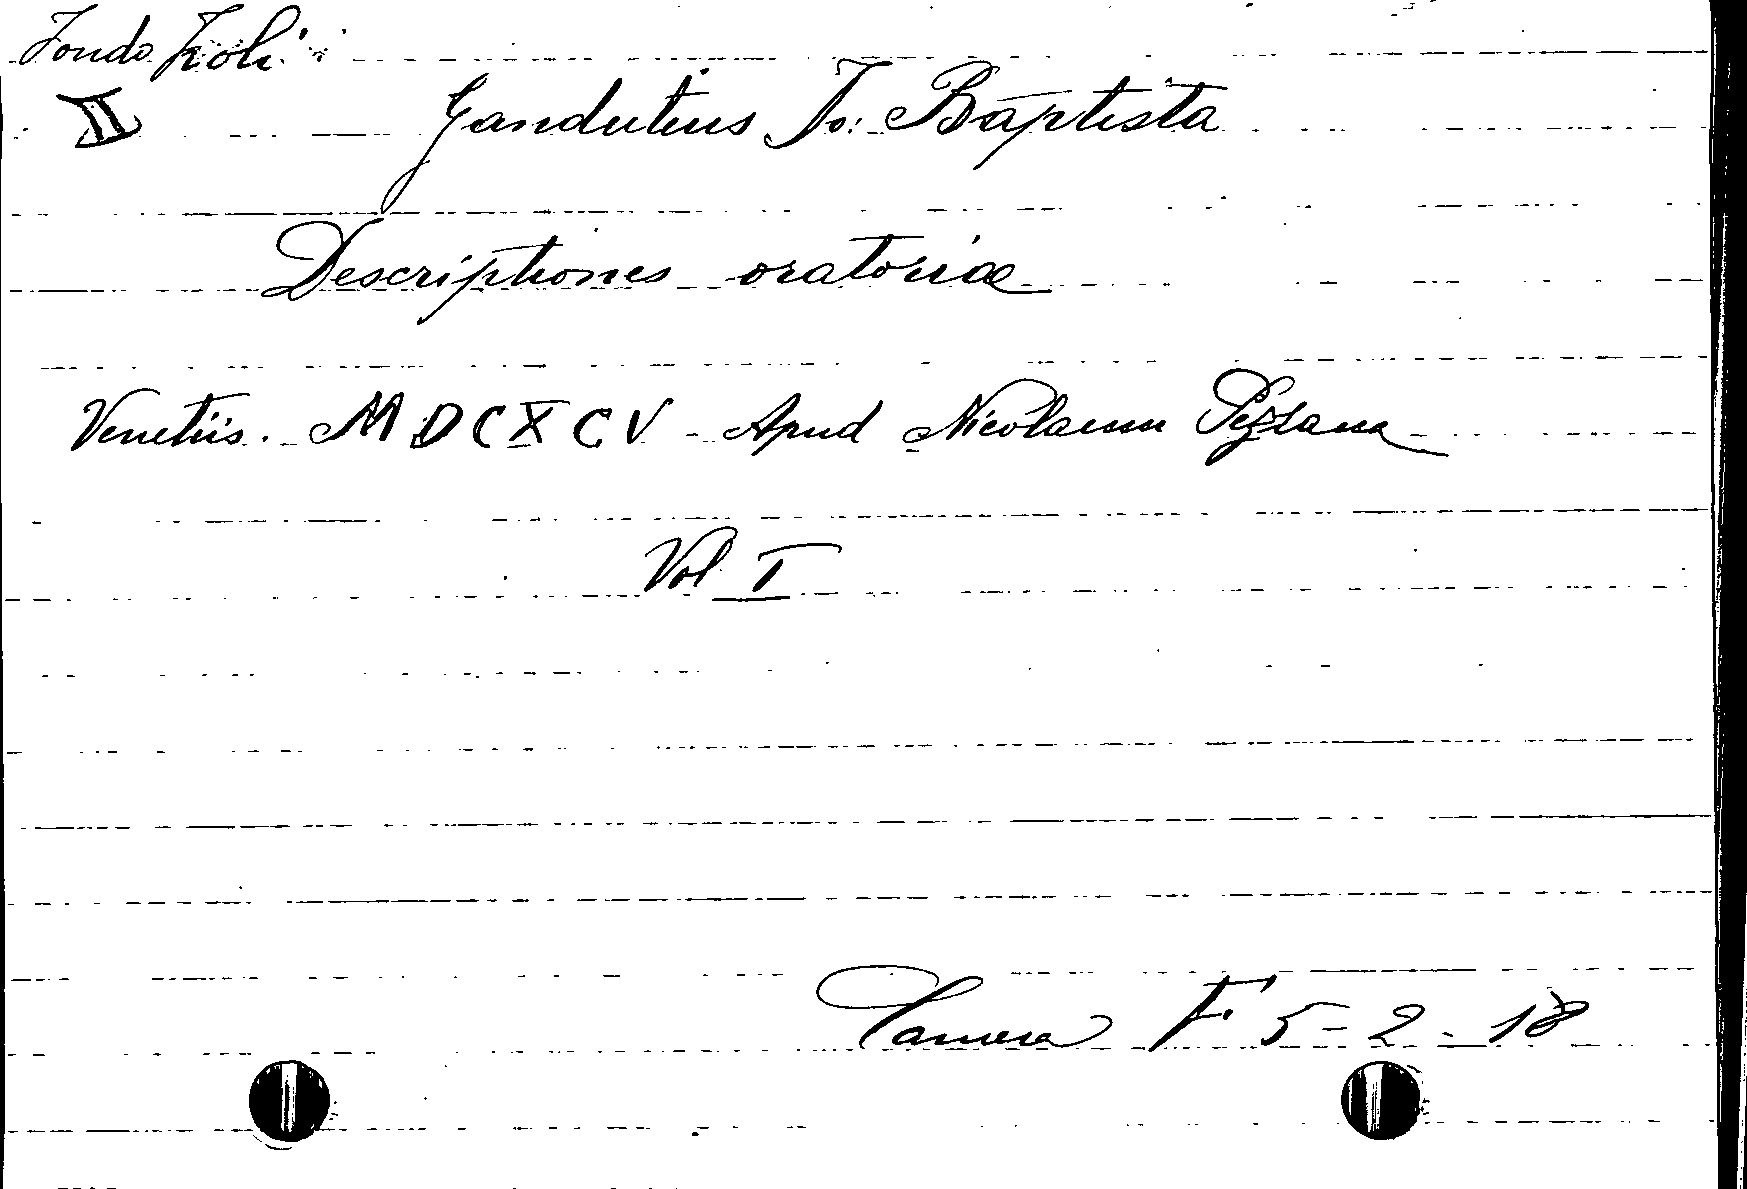 Fondo Zoli
II
Gandutius Jo: Baptista
Descriptiones oratoriae
Venetiis. MDCXCV - Apud Nicolaum Pezzana
Vol I
Camera F 5-2-18